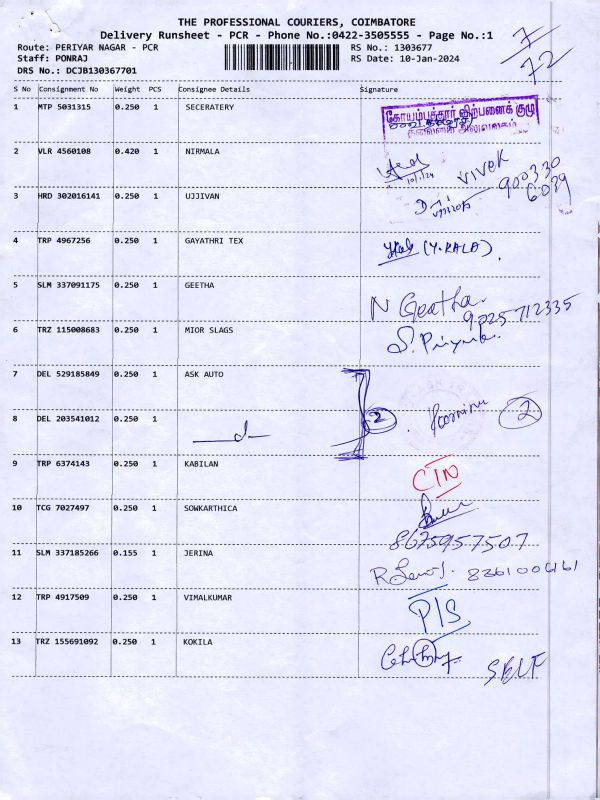 THE PROFESSIONAL COURIERS, COIMBATORE
Delivery Runsheet - PCR - Phone No.:0422-3505555 - Page No.:1
Route: PERIYAR NAGAR - PCR RS No.: 1303677
Staff: PONRAJ RS Date: 10-Jan-2024
DRS No.: DCJB130367701
7/72
S No Consignment No Weight PCS Consignee Details Signature
1 MTP 5031315 0.250 1 SECERATERY
கோயம்புத்தூர் விற்பனைக் குழு
தலைமை அலுவலகம்
2 VLR 4560108 0.420 1 NIRMALA
10/1/24 VIVEK 900330
6039
3 HRD 302016141 0.250 1 UJJIVAN
4 TRP 4967256 0.250 1 GAYATHRI TEX (Y. KALA).
5 SLM 337091175 0.250 1 GEETHA N Geetha
9025712335
6 TRZ 115008683 0.250 1 MIOR SLAGS S. Priyak
7 DEL 529185849 0.250 1 ASK AUTO
8 DEL 203541012 0.250 1 2 2
9 TRP 6374143 0.250 1 KABILAN CIN
10 TCG 7027497 0.250 1 SOWKARTHICA
8675957507
11 SLM 337185266 0.155 1 JERINA
12 TRP 4917509 0.250 1 VIMALKUMAR P/S
13 TRZ 155691092 0.250 1 KOKILA SELF